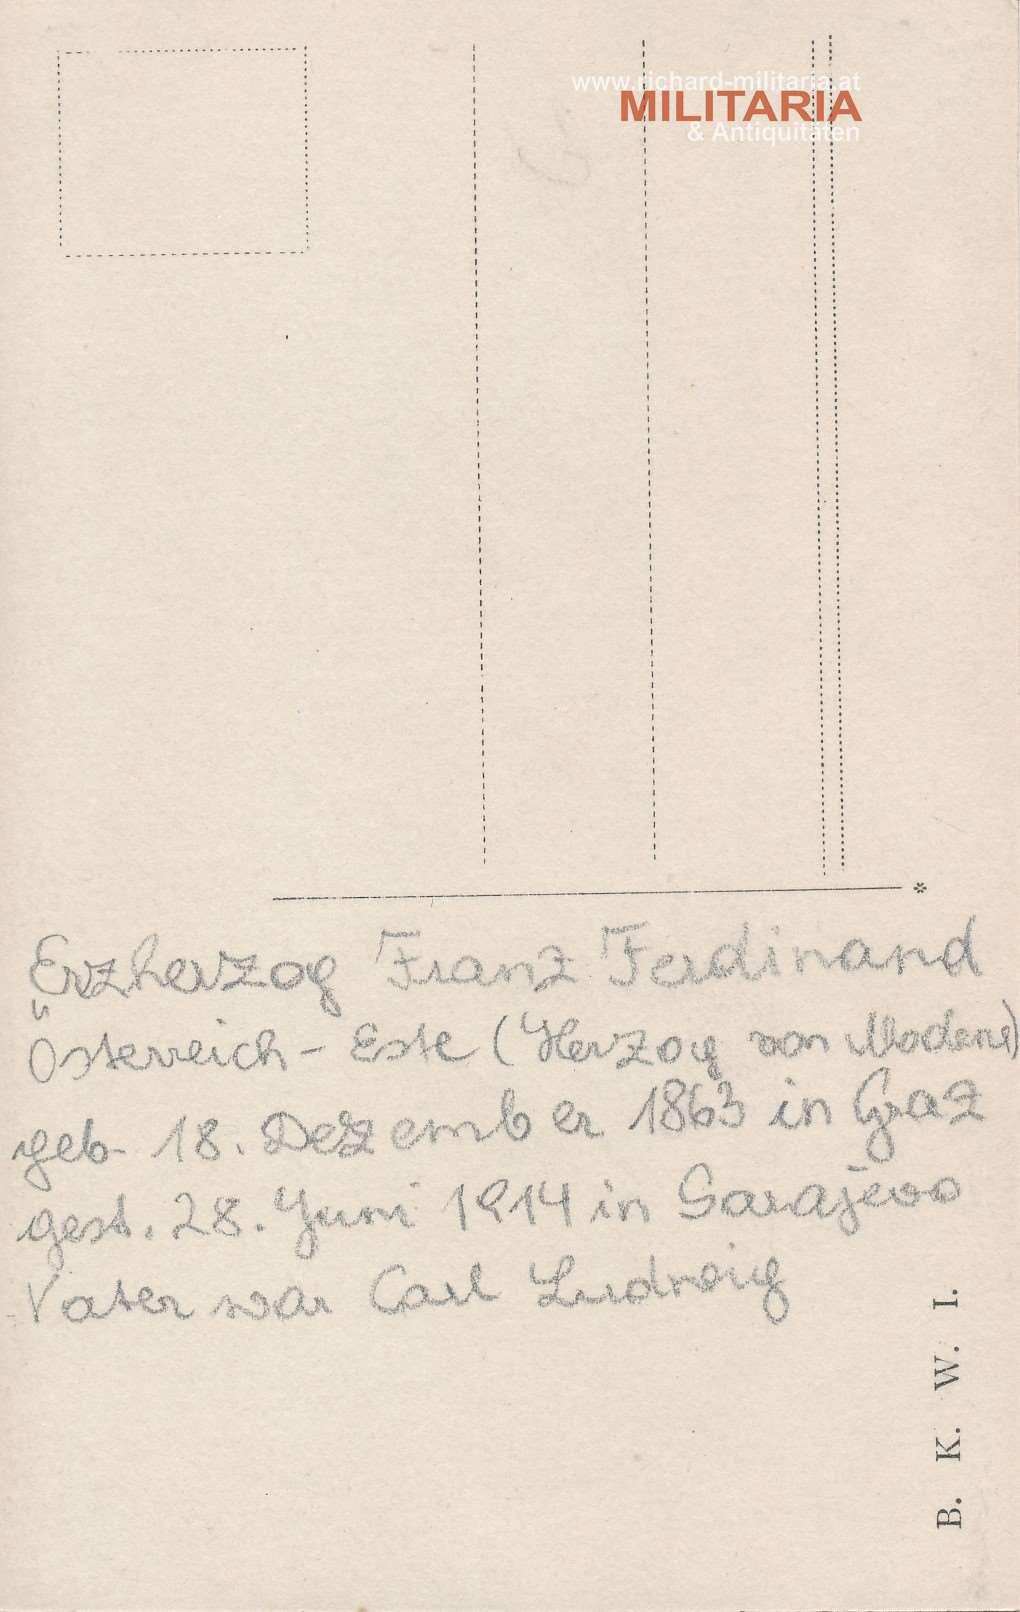 www.richard-militaria.at
MILITARIA
& Antiquitäten
Erzherzog Franz Ferdinand
Österreich - Este (Herzog von Modena)
geb. 18. Dezember 1863 in Graz
gest. 28. Juni 1914 in Sarajevo
Vater war Carl Ludwig
B. K. W. I.